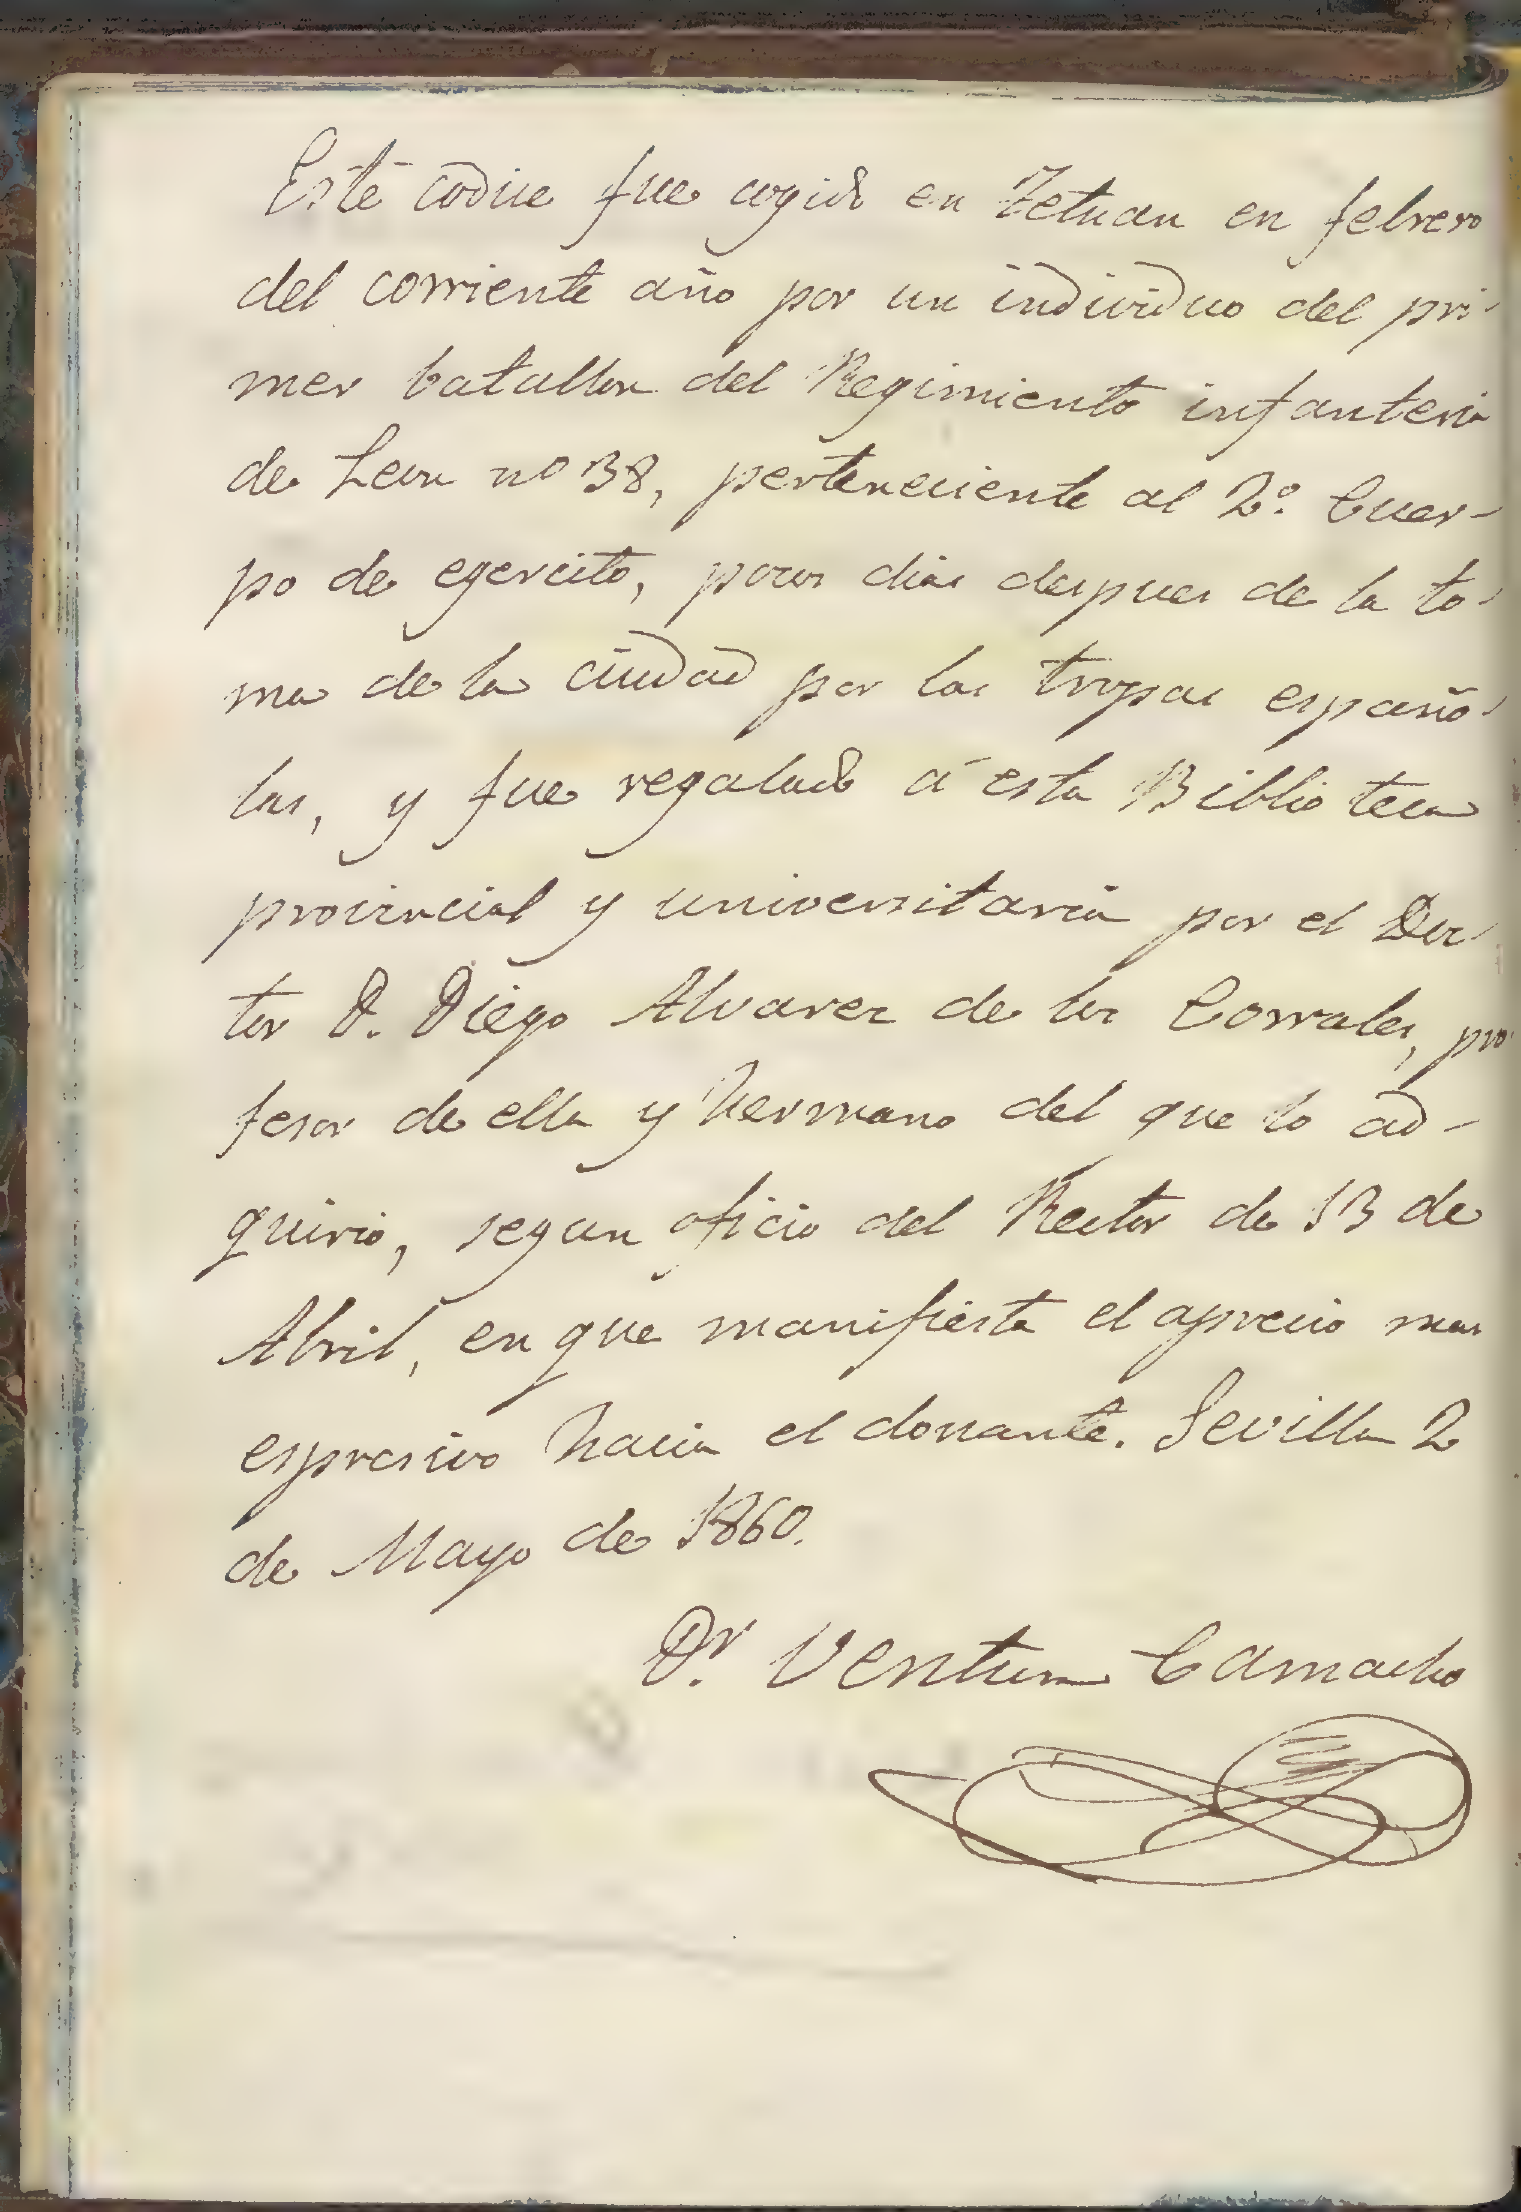 Este codice fue cogido en Tetuan en febrero
del corriente año por un individuo del pri-
mer batallon del Regimiento infanteria
de Leon nº 38, perteneciente al 2º. Cuer-
po de egercito, pocos dias despues de la to-
ma de la ciudad por las tropas españo-
las, y fue regalado á esta Biblioteca
provincial y universitaria por el Doc-
tor D. Diego Alvarez de los Corrales, pro-
fesor de ella y hermano del que lo ad-
quirio, segun oficio del Rector de 13 de
Abril, en que manifiesta el aprecio mas
espresivo hacia el donante. Sevilla 2
de Mayo de 1860.
Dr. Ventura Camacho